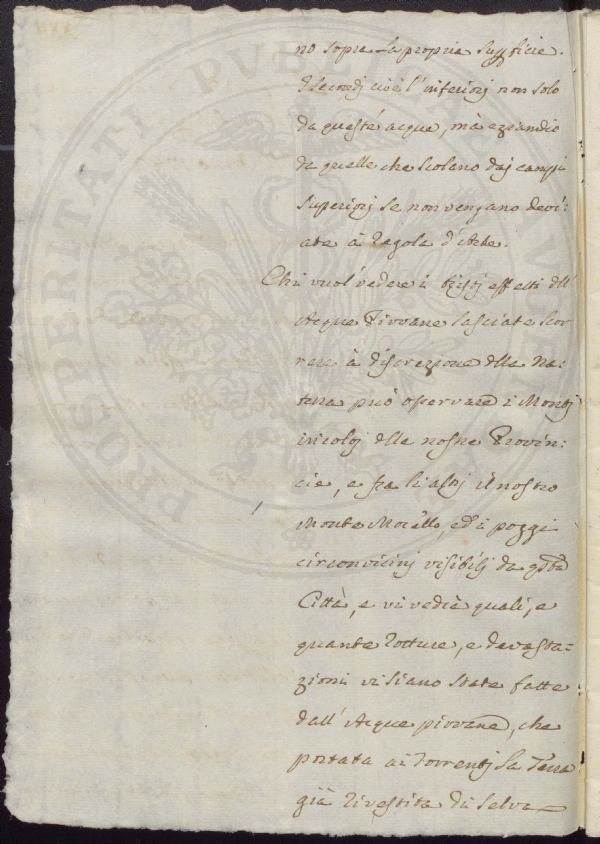 no sopra la propria superficie.
I secondi cioè l'inferiorj non solo
da queste acque, mà eziandio
da quelle che scolano daj campi
superiorj se non vengano devi:
ate à regola d'Arte.
Chi vuol vedere i tristj effetti dll'
Acque Piovane lasciate scor
rere à discrezione della Na:
tura può osservare i Montj
incoltj delle nostre Provin:
cie, e fra li altrj il nostro
Monte Morello, ed i poggi
circonvicinj visibilj da qsta
Città, e vi vedrà quali, e
quante rotture, e devasta:
zioni vi siano state fatte
dall'Acque piovane, che
portata ai Torrentj la Terra
già rivestita di selva
PROSPERITATI PVBLICAE